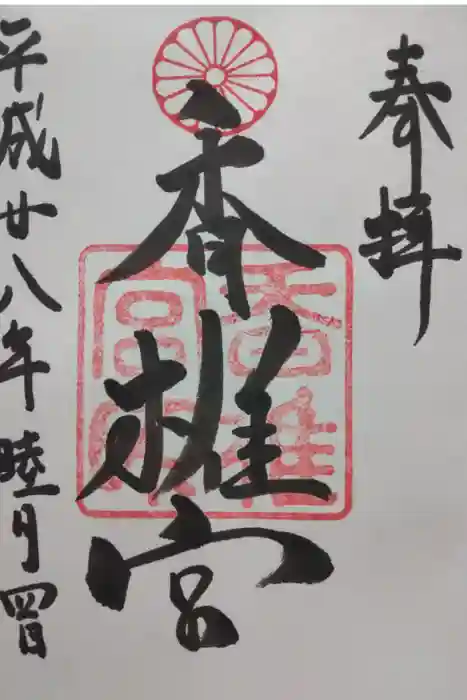 奉拝
香椎宮
香椎
宮印
平成廿八年睦月四日